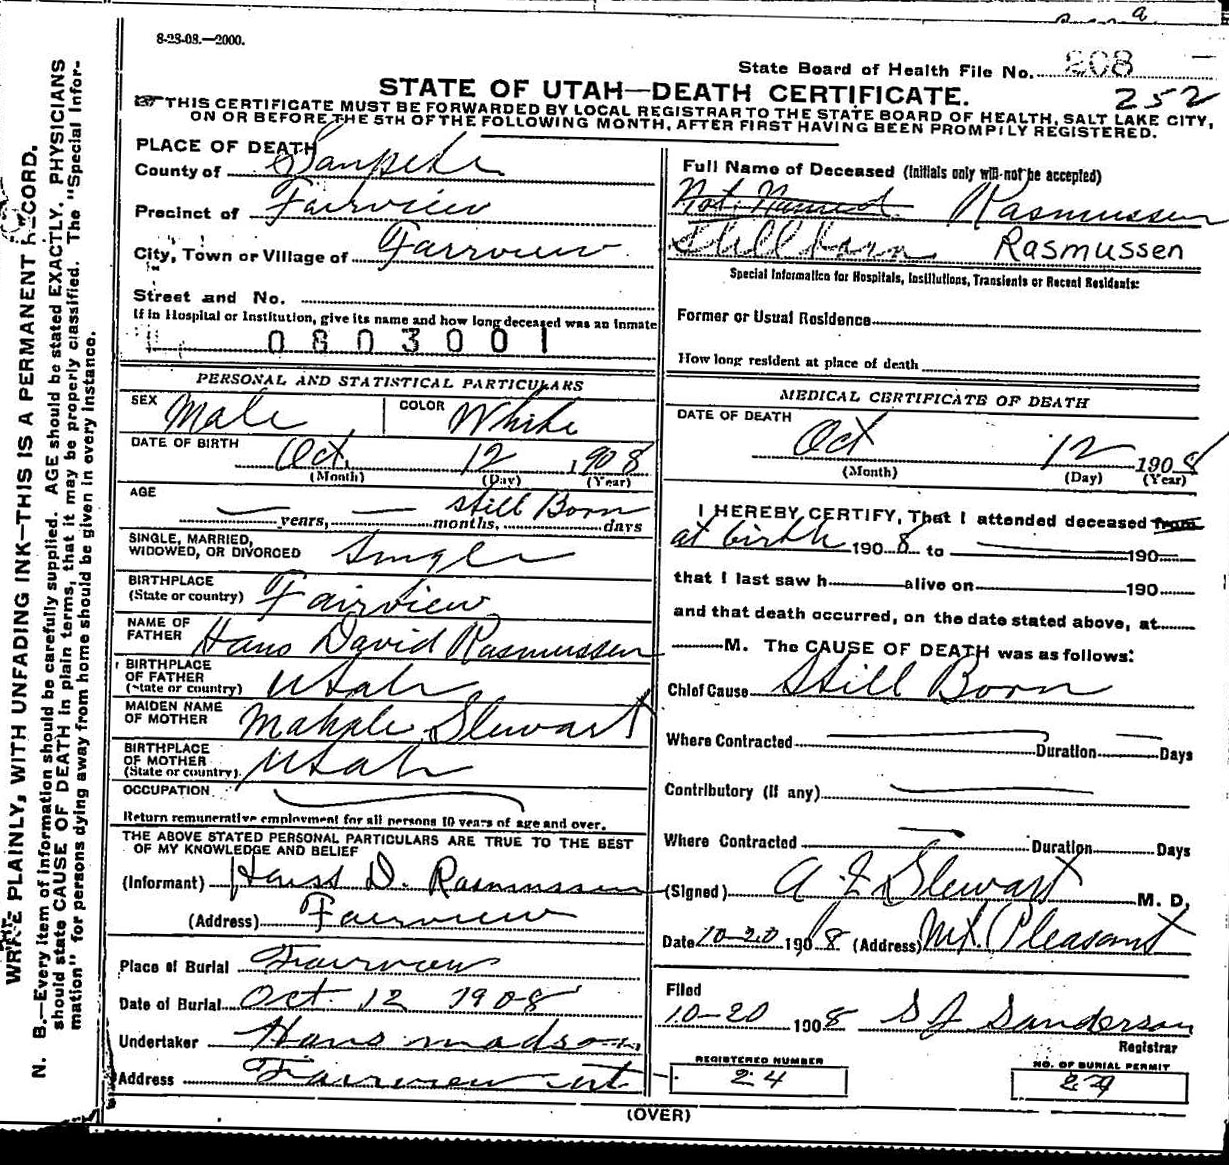 8-23-08.—2000.
State Board of Health File No. 208
252
STATE OF UTAH—DEATH CERTIFICATE.
THIS CERTIFICATE MUST BE FORWARDED BY LOCAL REGISTRAR TO THE STATE BOARD OF HEALTH, SALT LAKE CITY,
ON OR BEFORE THE 5TH OF THE FOLLOWING MONTH, AFTER FIRST HAVING BEEN PROMPTLY REGISTERED.
PLACE OF DEATH
County of Sanpete
Precinct of Fairview
City, Town or Village of Fairview
Street and No.
If in Hospital or Institution, give its name and how long deceased was an inmate
0803001
PERSONAL AND STATISTICAL PARTICULARS
SEX Male COLOR White
DATE OF BIRTH
Oct. 12 1908
(Month) (Day) (Year)
AGE
— years, — months, Still Born days
SINGLE, MARRIED,
WIDOWED, OR DIVORCED Single
BIRTHPLACE
(State or country) Fairview
NAME OF
FATHER Hans David Rasmussen
BIRTHPLACE
OF FATHER
(State or country) Utah
MAIDEN NAME
OF MOTHER Mahale Stewart
BIRTHPLACE
OF MOTHER
(State or country). Utah
OCCUPATION
Return remunerative employment for all persons 10 years of age and over.
THE ABOVE STATED PERSONAL PARTICULARS ARE TRUE TO THE BEST
OF MY KNOWLEDGE AND BELIEF
(Informant) D. Rasmussen
(Address) Fairview
Place of Burial Fairview
Date of Burial Oct. 12 1908
Undertaker Hans Madson
Address Fairview ut
Full Name of Deceased (Initials only will not be accepted)
Not Named Rasmussen
Stillborn Rasmussen
Special Information for Hospitals, Institutions, Transients or Recent Residents:
Former or Usual Residence
How long resident at place of death
MEDICAL CERTIFICATE OF DEATH
DATE OF DEATH
Oct 12 1908
(Month) (Day) (Year)
I HEREBY CERTIFY, That I attended deceased from
at birth 1908 to — 190—
that I last saw h alive on 190
and that death occurred, on the date stated above, at
M. The CAUSE OF DEATH was as follows:
Chief Cause Still Born
Where Contracted — Duration — Days
Contributory (if any) —
Where Contracted — Duration Days
(Signed) Stewart M. D.
Date 10-20 1908 (Address) Mt. Pleasant
Filed
10-20 1908 S J Sanderson
Registrar
REGISTERED NUMBER
24
NO. OF BURIAL PERMIT
(OVER)
WRITE PLAINLY, WITH UNFADING INK—THIS IS A PERMANENT RECORD.
N. B.—Every item of information should be carefully supplied. AGE should be stated EXACTLY. PHYSICIANS
should state CAUSE OF DEATH in plain terms, that it may be properly classified. The "Special Infor-
mation" for persons dying away from home should be given in every instance.